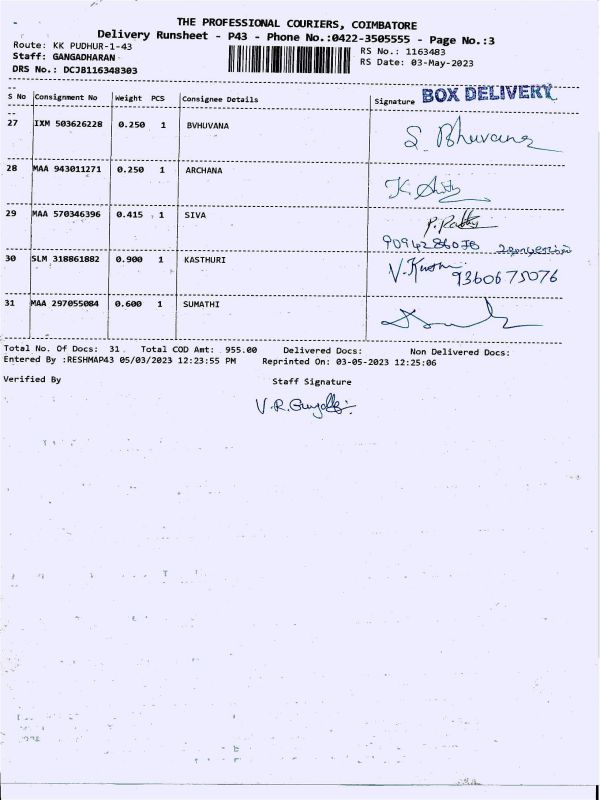 THE PROFESSIONAL COURIERS, COIMBATORE
Delivery Runsheet - P43 - Phone No.:0422-3505555 - Page No.:3
Route: KK PUDHUR-1-43 RS No.: 1163483
Staff: GANGADHARAN RS Date: 03-May-2023
DRS No.: DCJB116348303
S No Consignment No Weight PCS Consignee Details Signature BOX DELIVERY
27 IXM 503626228 0.250 1 BVHUVANA S. Bhuvana
28 MAA 943011271 0.250 1 ARCHANA
29 MAA 570346396 0.415 1 SIVA
30 SLM 318861882 0.900 1 KASTHURI 9360675076
31 MAA 297055084 0.600 1 SUMATHI
Total No. Of Docs: 31 Total COD Amt: 955.00 Delivered Docs: Non Delivered Docs:
Entered By :RESHMAP43 05/03/2023 12:23:55 PM Reprinted On: 03-05-2023 12:25:06
Verified By Staff Signature